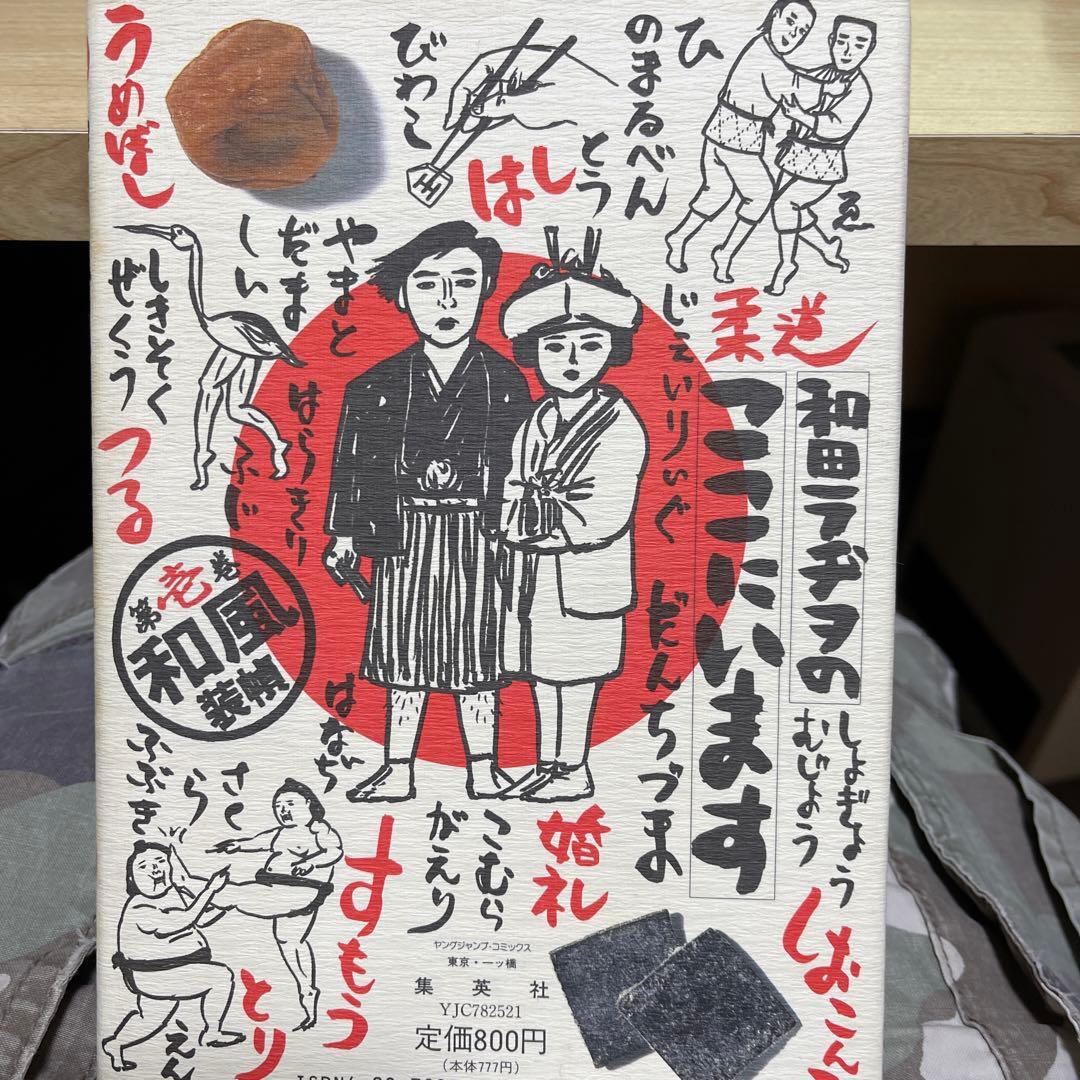 うめぼし
びわこ
はし
ひ
のまるべん
とう
ゑ
柔道
和田ラヂヲの
ここにいます
やまと
だましい
しきそく
ぜくう
つる
はらきり
ふじ
じぇいりぃぐ
だんちづま
第壱巻
和風
装幀
はなぢ
さくら
ふぶき
すもう
こむら
がえり
婚礼
しょぎょう
むじょう
とり
えん
ヤングジャンプ・コミックス
東京・一ッ橋
集英社
YJC782521
定価800円
(本体777円)